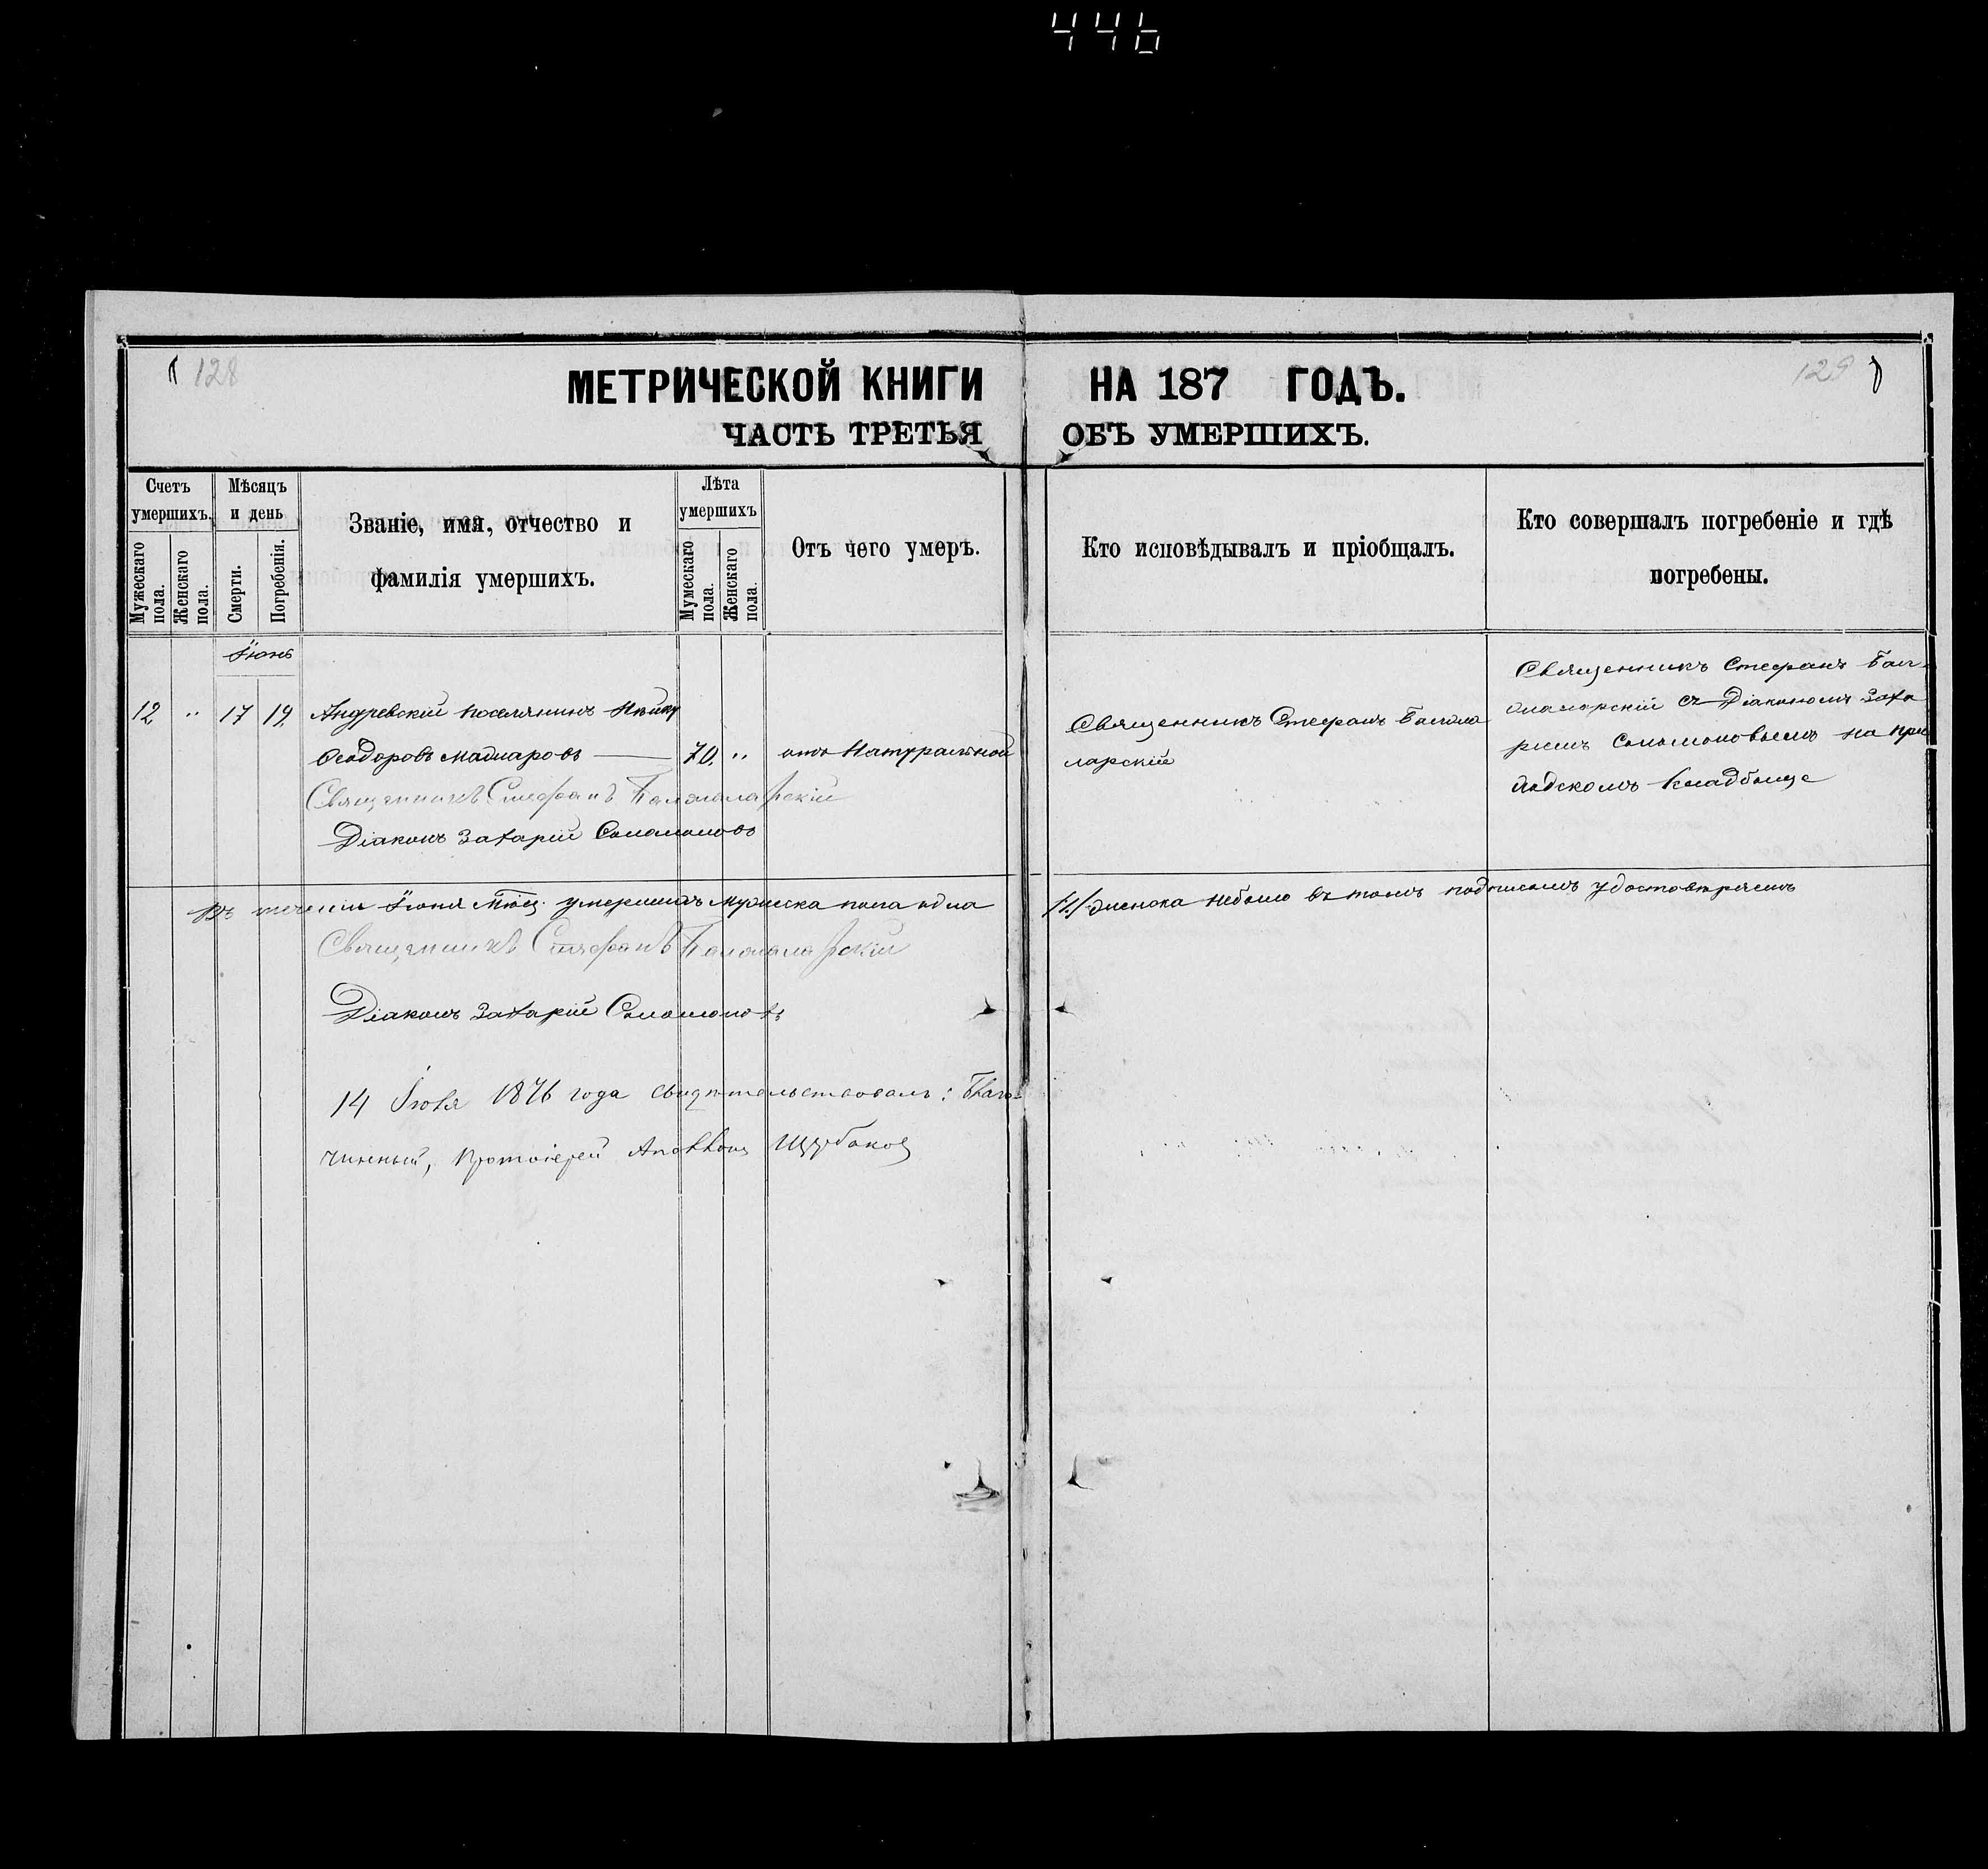 446
128
129
МЕТРИЧЕСКОЙ КНИГИ НА 187 ГОДЪ.
ЧАСТЬ ТРЕТЬЯ ОБЪ УМЕРШИХЪ.
Счетъ умершихъ.
Мужескаго пола.
Женскаго пола.
Мѣсяцъ и день
Смерти.
Погребенія.
Званіе, имя, отчество и
фамилія умершихъ.
Лѣта умершихъ
Мужескаго пола.
Женскаго пола.
Отъ чего умеръ.
Кто исповѣдывалъ и пріобщалъ.
Кто совершалъ погребеніе и гдѣ
погребены.
Іюнь
12 " 17 19. Андревскій поселянинъ
Ѳеодоровъ Маджаровъ — 70. " отъ Натуральной
Священникъ Стефанъ
Діаконъ Захарій Соломоновъ
Священникъ Стефанъ
ларскій
Священникъ Стефанъ
съ Діакономъ Заха
ріемъ Соломоновымъ на При
ходскомъ Кладбище
Въ теченіи Іюня Мѣсц. умершихъ мужеска пола одна /1/ женска небыло въ томъ подписомъ удостовѣряемъ
Священникъ Стефанъ
Діаконъ Захарій Соломоновъ
14 Іюля 1876 года свидѣтельствовалъ: Благо=
чинный, Протоіерей